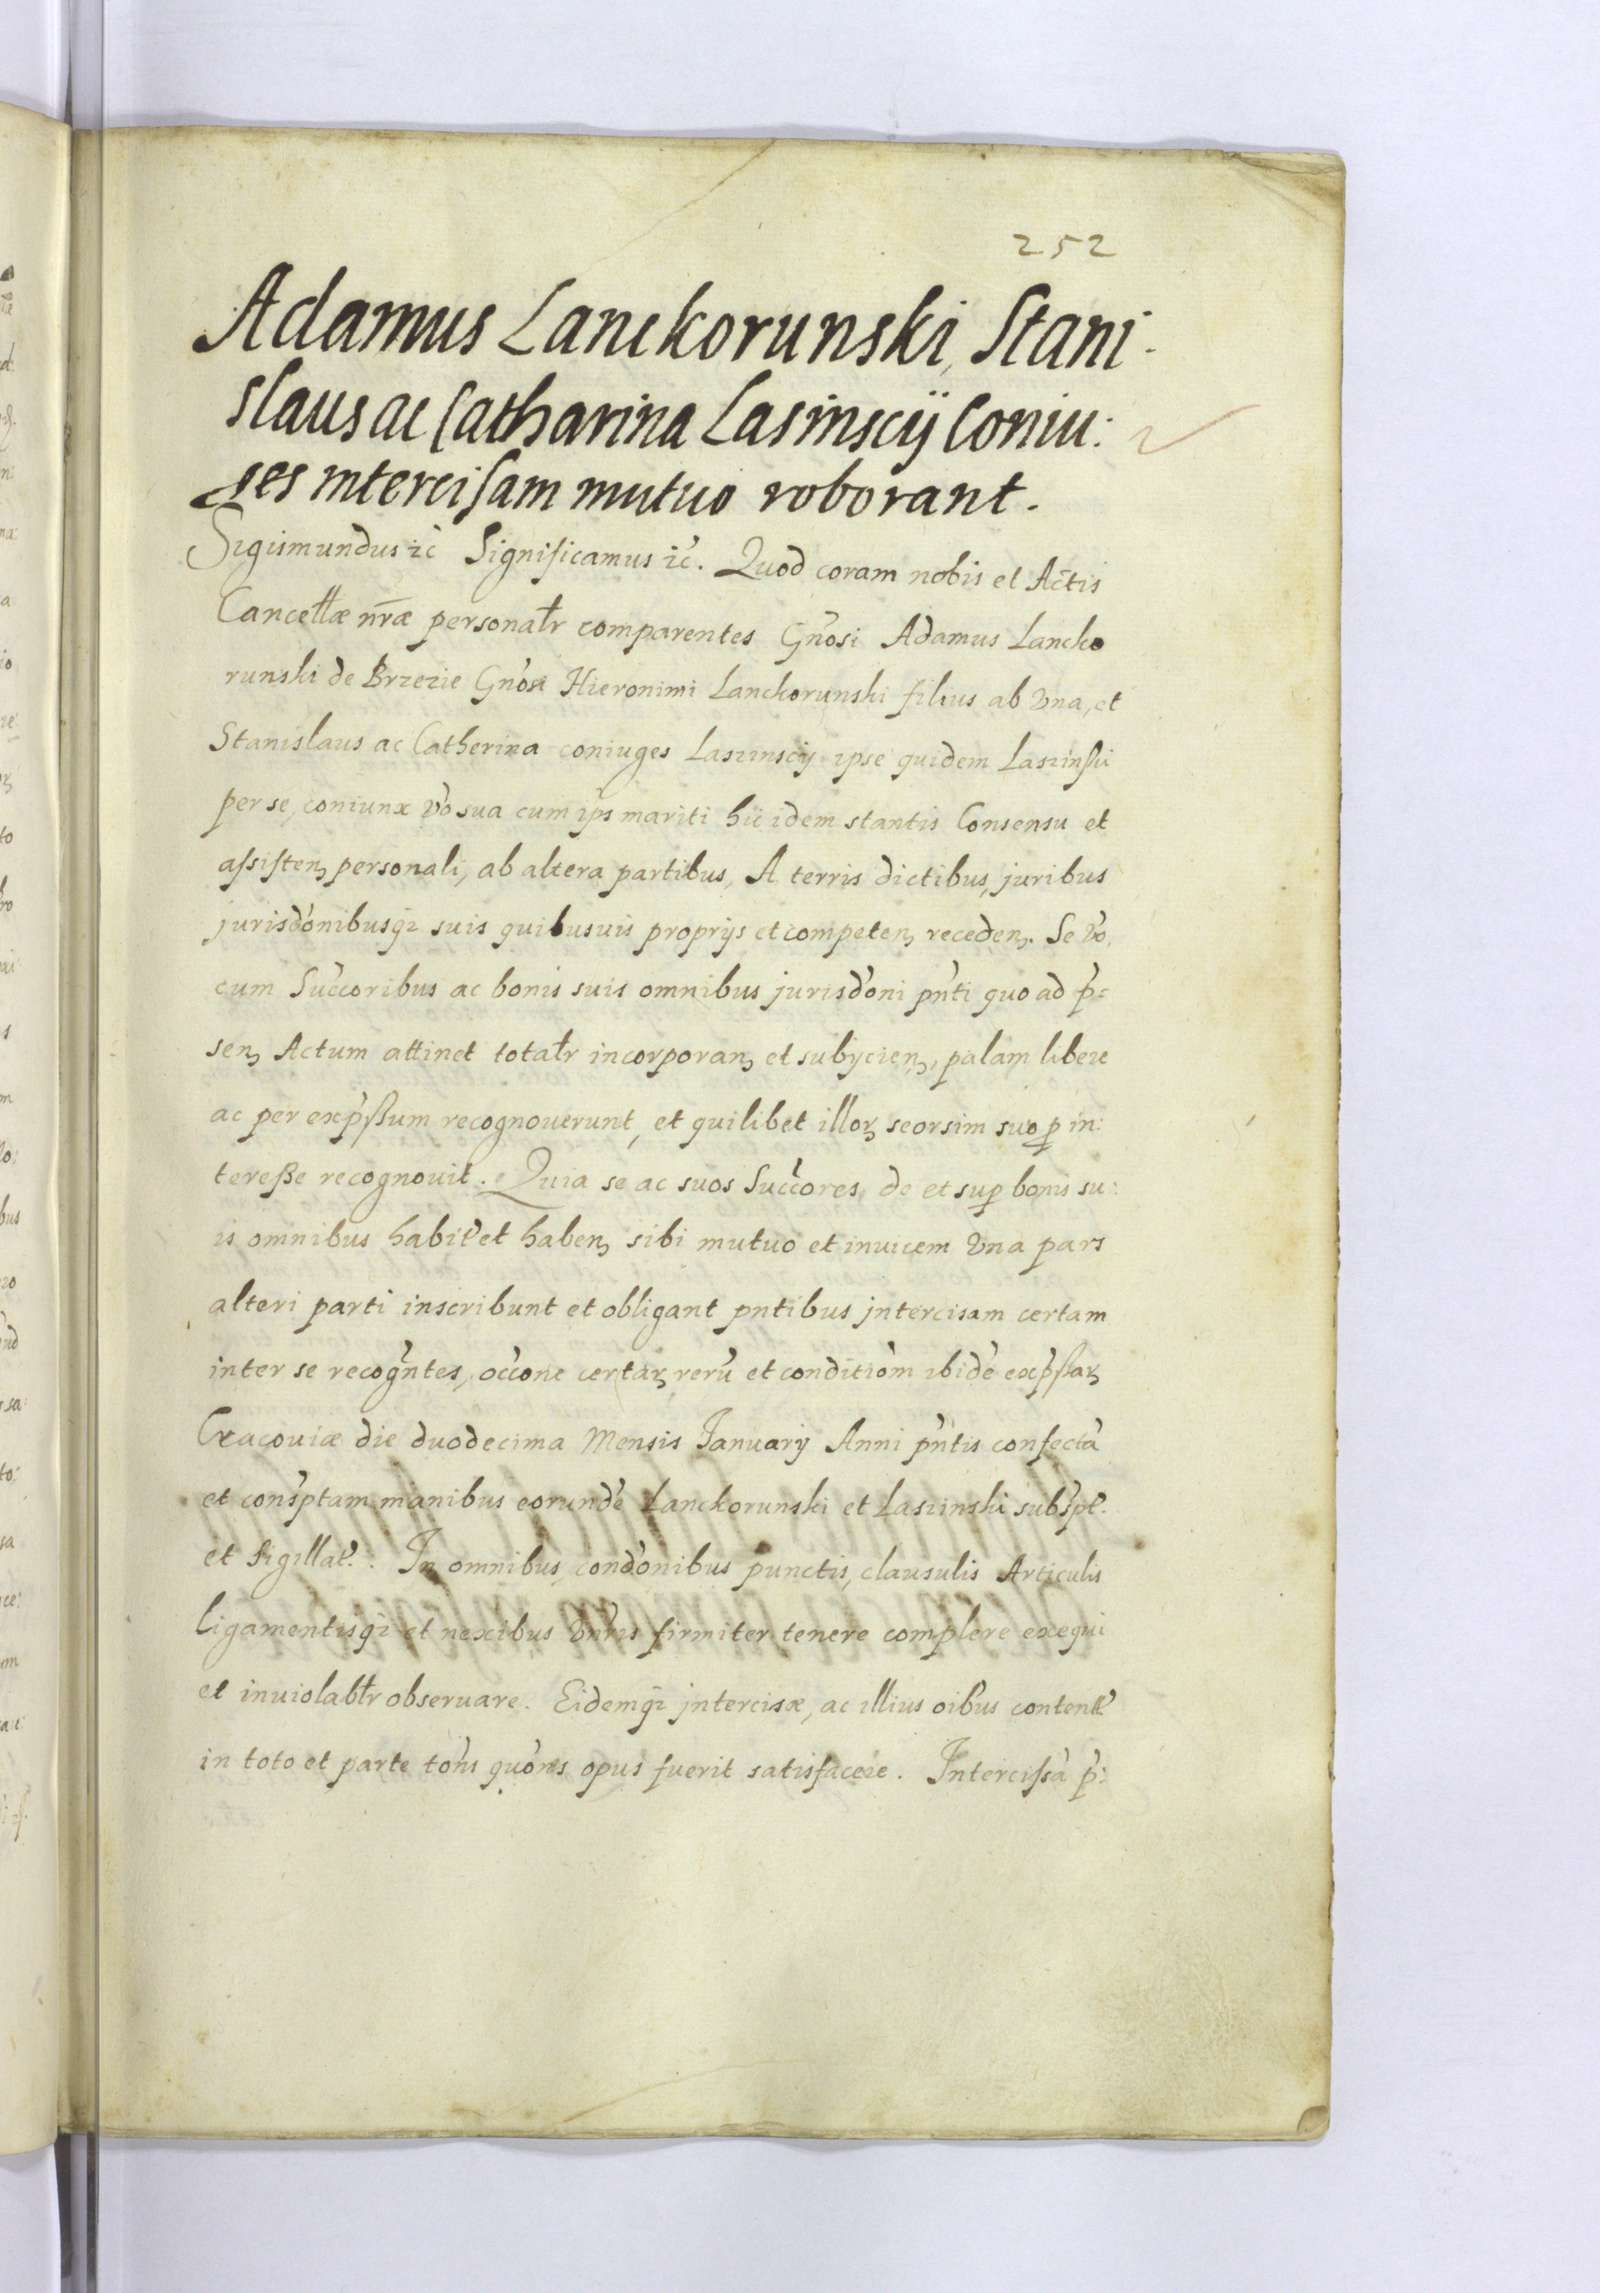 252
Adamus Lanckorunski, Stani-
slaus ac Catharina Lasinscÿ Coniu:
ges intercisam mutuo roborant.
Sigismundus ꝛc̃ Significamus ꝛc̃. Quod coram nobis et Actis
Cancellæ nr̃æ personalr̃ comparentes Gño̅si Adamus Lancko
runski de Brzezie Gñosi Hieronimi Lanckorunski filius ab vna, et
Stanislaus ac Catherina coniuges Laszinscÿ ipse quidem Laszinski
per se, coniunx vo̓ sua cum ip̃s mariti hic idem stantis Consensu et
aſsiſtenꝫ personali, ab altera partibus, A terris dictibus, juribus
jurisdo̓nibusqꝫ suis quibusuis proprijs et competenꝫ recedenꝫ. Se vo̓
cum Succ̓oribus ac bonis suis omnibus jurisdo̓ni pn̓ti quo ad p̓=
senꝫ Actum attinet totalr̃ incorporanꝫ et subÿcienꝫ, palam libere
ac per exp̓ßum recognouerunt, et quilibet illoꝝ seorsim suo ꝑ in:
tereße recognouit. Quia se ac suos Succ̓ores, de et suꝑ bonis su:
is omnibus habit̓ et habenꝫ sibi mutuo et inuicem vna pars
alteri parti inscribunt et obligant pntibus jntercisam certam
inter se recog̓ntes, occ̓one certaꝝ reru̓ et conditio̓m ibide̓ exp̓ßaꝝ
Cracouiæ die duodecima Mensis Januarÿ Anni pn̓tis confecta̓
et cons̓ptam manibus eorunde̓ Lanckorunski et Laszinski subs̓pt̓.
et sigillat̓. In omnibus, condo̓nibus punctis, clausulis Articulis
ligamentisqꝫ et nexibus vnr̓is firmiter tenere complere exequi
et inuiolablr̃ obseruare. Eidemqꝫ jntercisæ, ac illius oi̓bus content̓
in toto et parte to̓ns quo̓ns opus fuerit satisfacere. Interciſsa̓ p̓: